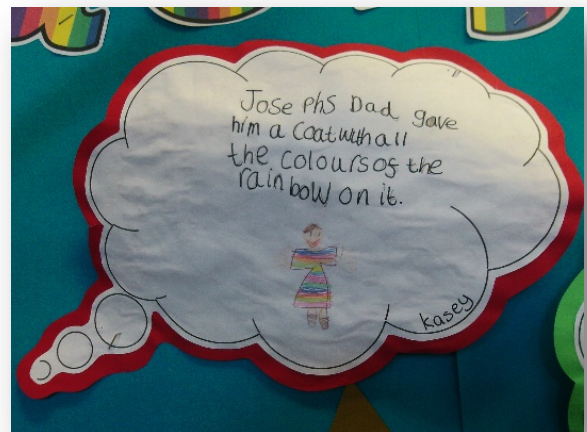 Josephs Dad gave
him a coat with all
the colours of the
rainbow on it.
kasey